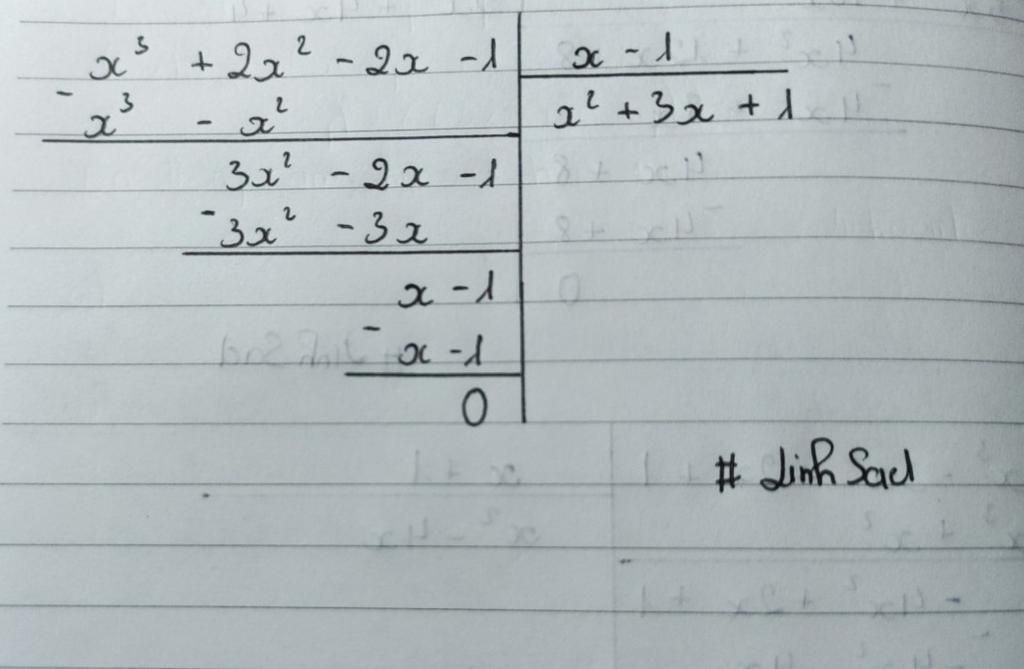 x³ + 2x² - 2x - 1 x - 1
- x³ - x² x² + 3x + 1
3x² - 2x - 1
- 3x² - 3x
x - 1
- x - 1
0
# Linh Sad